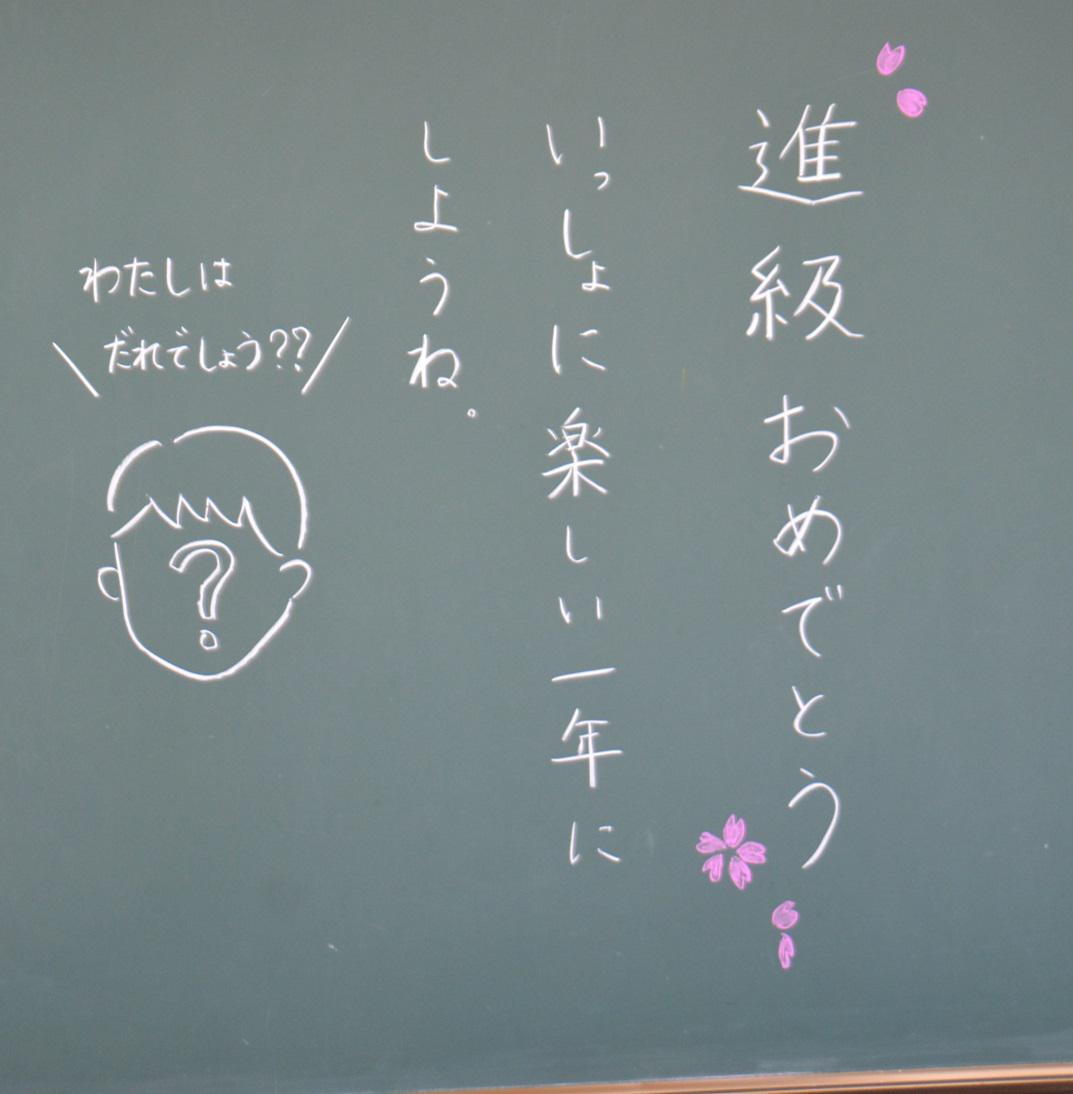 進級おめでとう
いっしょに楽しい一年に
しようね。
わたしは
だれでしょう??
?